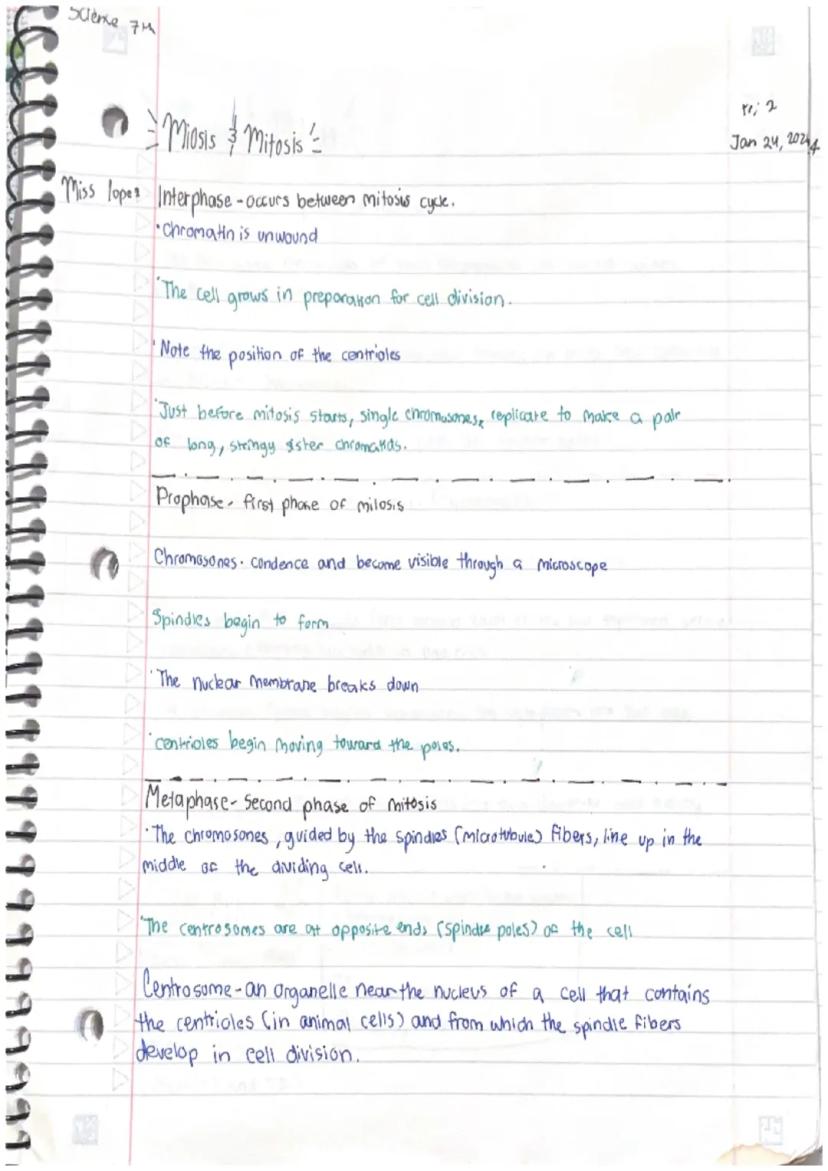 Science 7th
Miosis & Mitosis
2
Jan 24, 2024
Miss lopez
Interphase - occurs between mitosis cycle.
• Chromatin is unwound
• The cell grows in preparation for cell division.
• Note the position of the centrioles
• Just before mitosis starts, single chromosones, replicate to make a pair
of long, stringy sister chromatids.
Prophase - first phase of mitosis
Chromosones • condence and become visible through a microscope
Spindles begin to form
• The nuclear membrane breaks down
• centrioles begin moving toward the poles.
Metaphase - Second phase of mitosis
• The chromosones, guided by the spindles (microtubule) fibers, line up in the
middle of the dividing cell.
• The centrosomes are at opposite ends (spindle poles) of the cell
Centrosome - an organelle near the nucleus of a cell that contains
the centrioles (in animal cells) and from which the spindle fibers
develop in cell division.